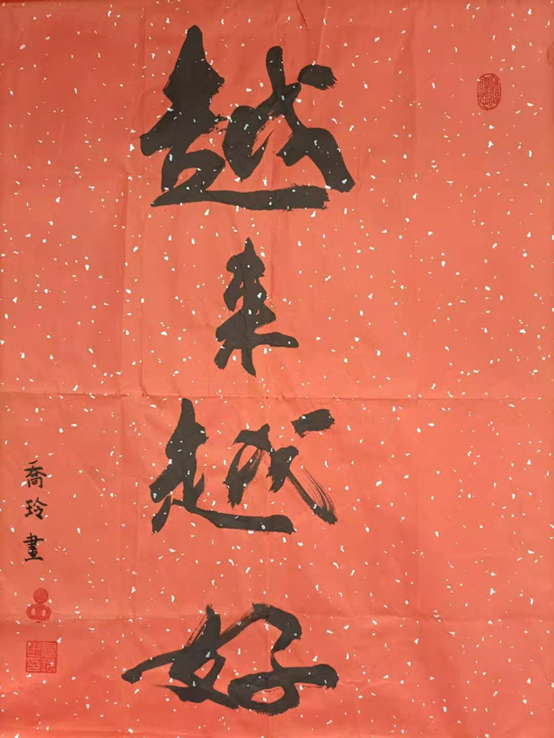 越来越好
喬玲書